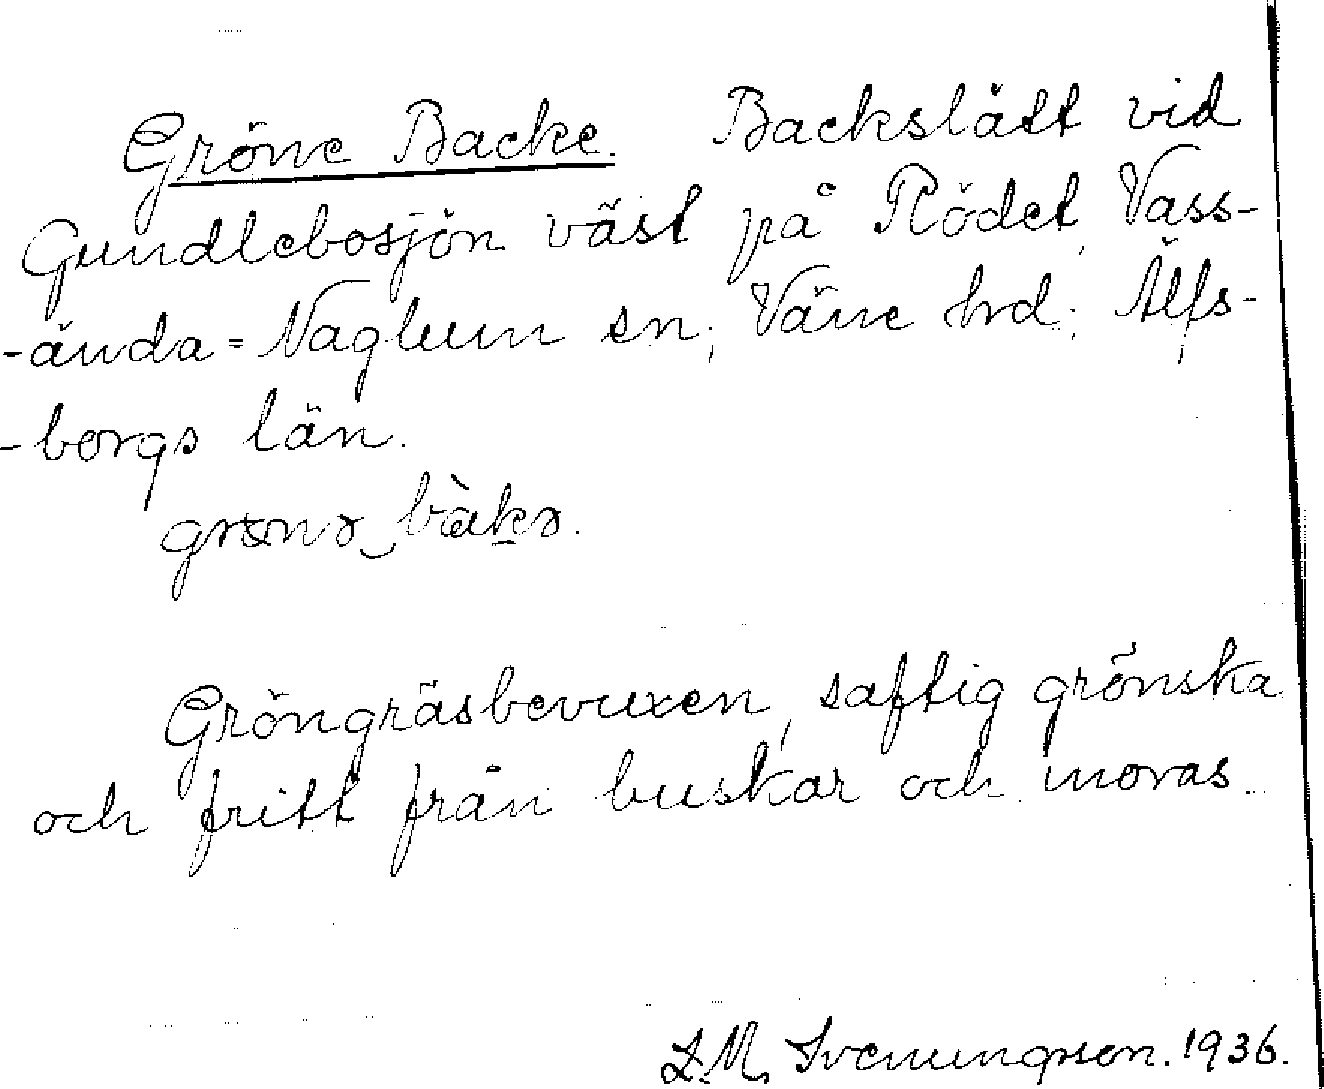 Gröne Backe. Backslätt vid
Gundlebosjön väst på Rödet, Vass-
-ända=Naglum sn; Väne hrd; Älfs-
-borgs län.
grönə‿bàkə.
Gröngräsbevuxen, saftig grönska
och fritt från buskar och moras.
L.M. Svenungson. 1936.